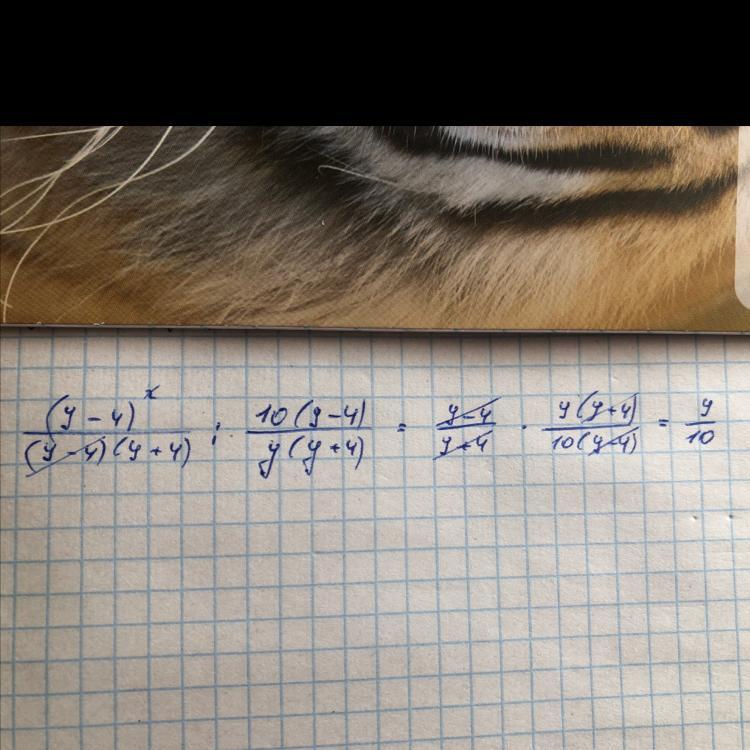 (y - 4)^x / (y - 4)(y + 4) : 10(y - 4) / y(y + 4) = y - 4 / y + 4 · y(y + 4) / 10(y - 4) = y / 10